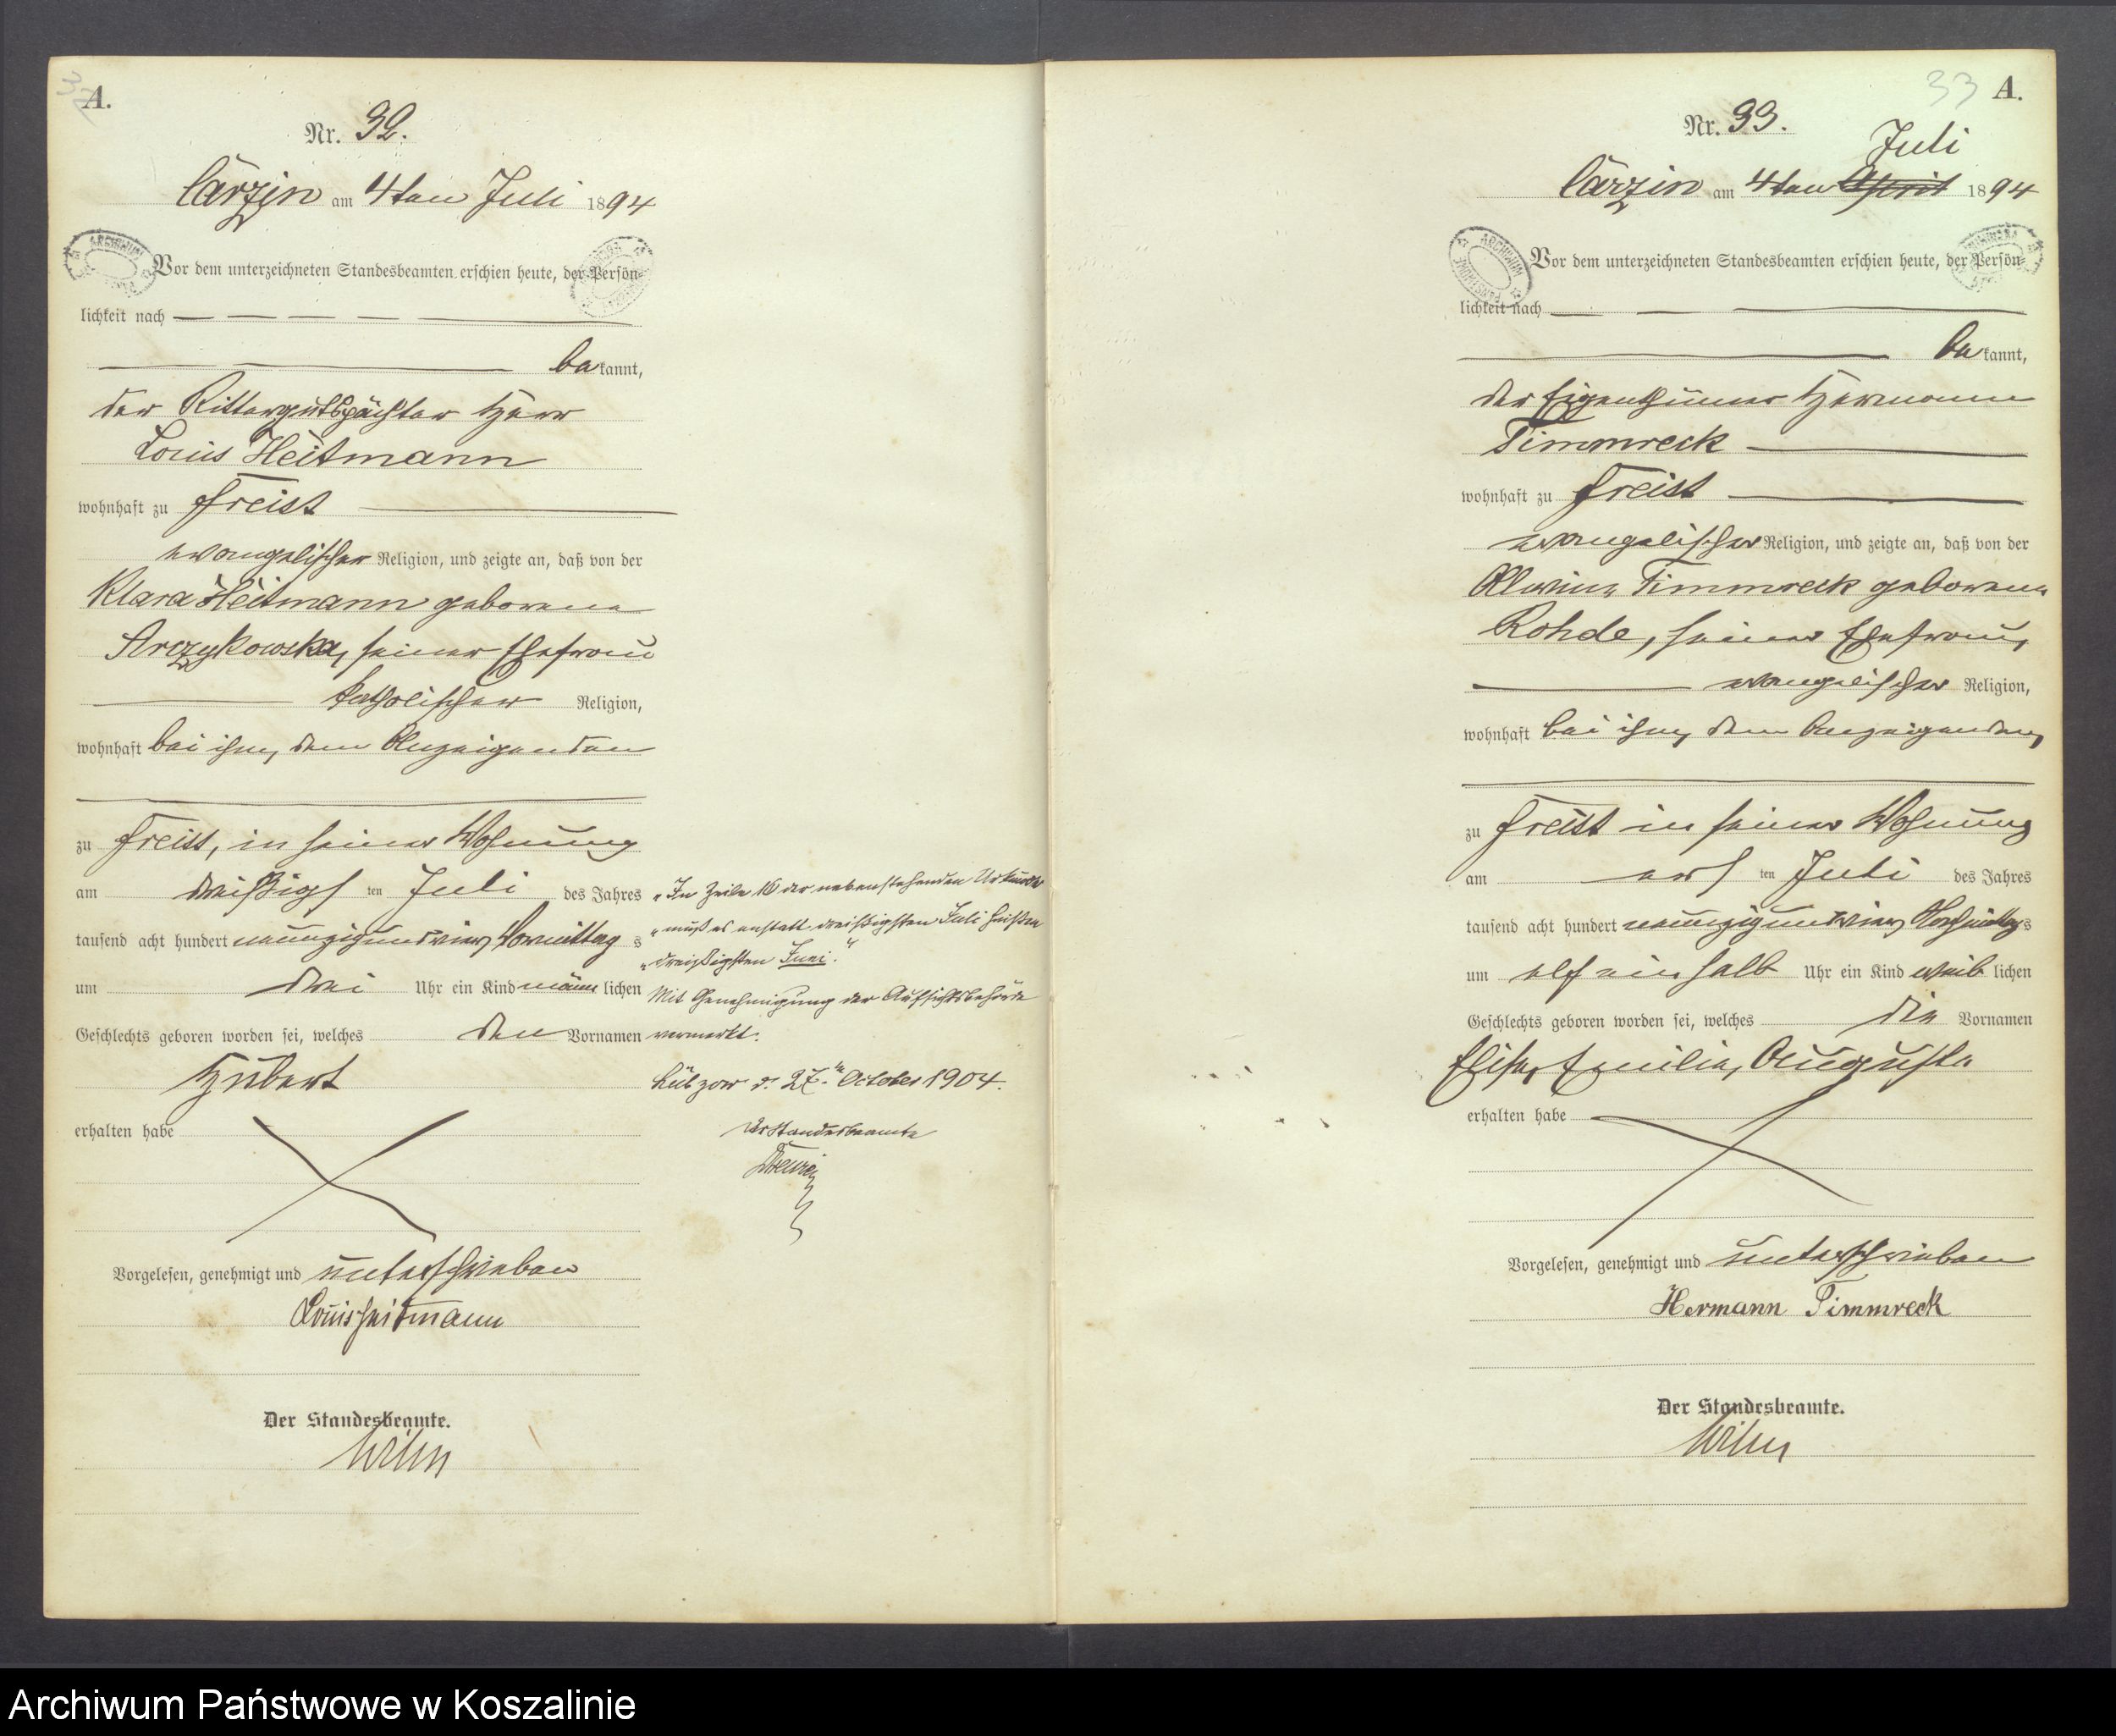 A.
32
Nr. 32.
Carzin am 4ten Juli 1894
Vor dem unterzeichneten Standesbeamten erschien heute, der Persön-
lichkeit nach
bekannt,
der Rittergutspächter Herr
Louis Heitmann
wohnhaft zu Freist
evangelischer Religion, und zeigte an, daß von der
Klara Heitmann geborene
Arczykowska, seiner Ehefrau
katholischer Religion,
wohnhaft bei ihm, dem Anzeigenden
zu Freist, in seiner Wohnung
am dreißigsten Juli des Jahres
tausend acht hundert neunzigundvier Vormittags
um drei Uhr ein Kind männlichen
Geschlechts geboren worden sei, welches den Vornamen
Hubert
erhalten habe
Vorgelesen, genehmigt und unterschrieben
Louis Heitmann
Der Standesbeamte.
„In Zeile 16 der nebenstehenden Urkunde
„muß es anstatt dreißigsten Juli heißen
„dreißigsten Juni.“
Mit Genehmigung der Aufsichtsbehörde
vermerkt.
Lübzow d. 27.ten October 1904.
Der Standesbeamte
33
A.
Nr. 33.
Juli
Carzin am 4ten April 1894
Vor dem unterzeichneten Standesbeamten erschien heute, der Persön-
lichkeit nach
bekannt,
der Eigenthümer Hermann
Timmreck
wohnhaft zu Freist
evangelischer Religion, und zeigte an, daß von der
Alwine Timmreck geborene
Rohde, seiner Ehefrau,
evangelischer Religion,
wohnhaft bei ihm, dem Anzeigenden,
zu Freist in seiner Wohnung
am ersten Juli des Jahres
tausend acht hundert neunzigundvier Nachmittags
um elfeinhalb Uhr ein Kind weiblichen
Geschlechts geboren worden sei, welches die Vornamen
Elise, Emilie, Auguste
erhalten habe
Vorgelesen, genehmigt und unterschrieben
Hermann Timmreck
Der Standesbeamte.
Archiwum Państwowe w Koszalinie